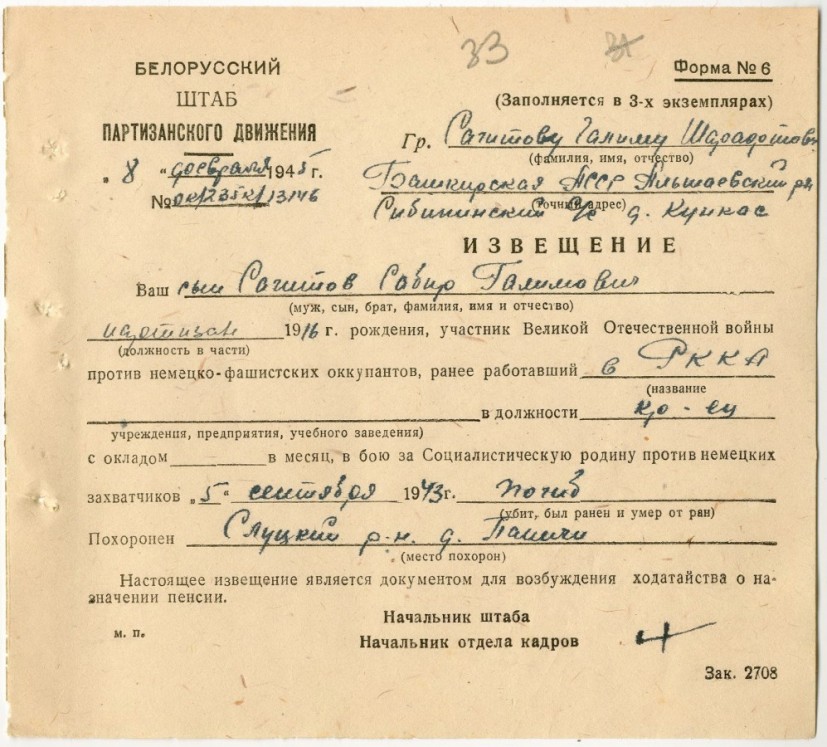 33
БЕЛОРУССКИЙ
ШТАБ
ПАРТИЗАНСКОГО ДВИЖЕНИЯ
„ 8 “ февраля 1945 г.
№ 13146
Форма № 6
(Заполняется в 3-х экземплярах)
Гр. Сагитову Галиму
(фамилия, имя, отчество)
Башкирская АССР
(точный адрес)
с/с д.
ИЗВЕЩЕНИЕ
Ваш сын Сагитов Сабир Галимович
(муж, сын, брат, фамилия, имя и отчество)
партизан 1916 г. рождения, участник Великой Отечественной войны
(должность в части)
против немецко-фашистских оккупантов, ранее работавший в РККА
(название
в должности кр-ец
учреждения, предприятия, учебного заведения)
с окладом в месяц, в бою за Социалистическую родину против немецких
захватчиков „ 5 “ сентября 1943 г. погиб
(убит, был ранен и умер от ран)
Похоронен Слуцкий р-н. д.
(место похорон)
Настоящее извещение является документом для возбуждения ходатайства о на-
значении пенсии.
Начальник штаба
м. п.
Начальник отдела кадров
Зак. 2708